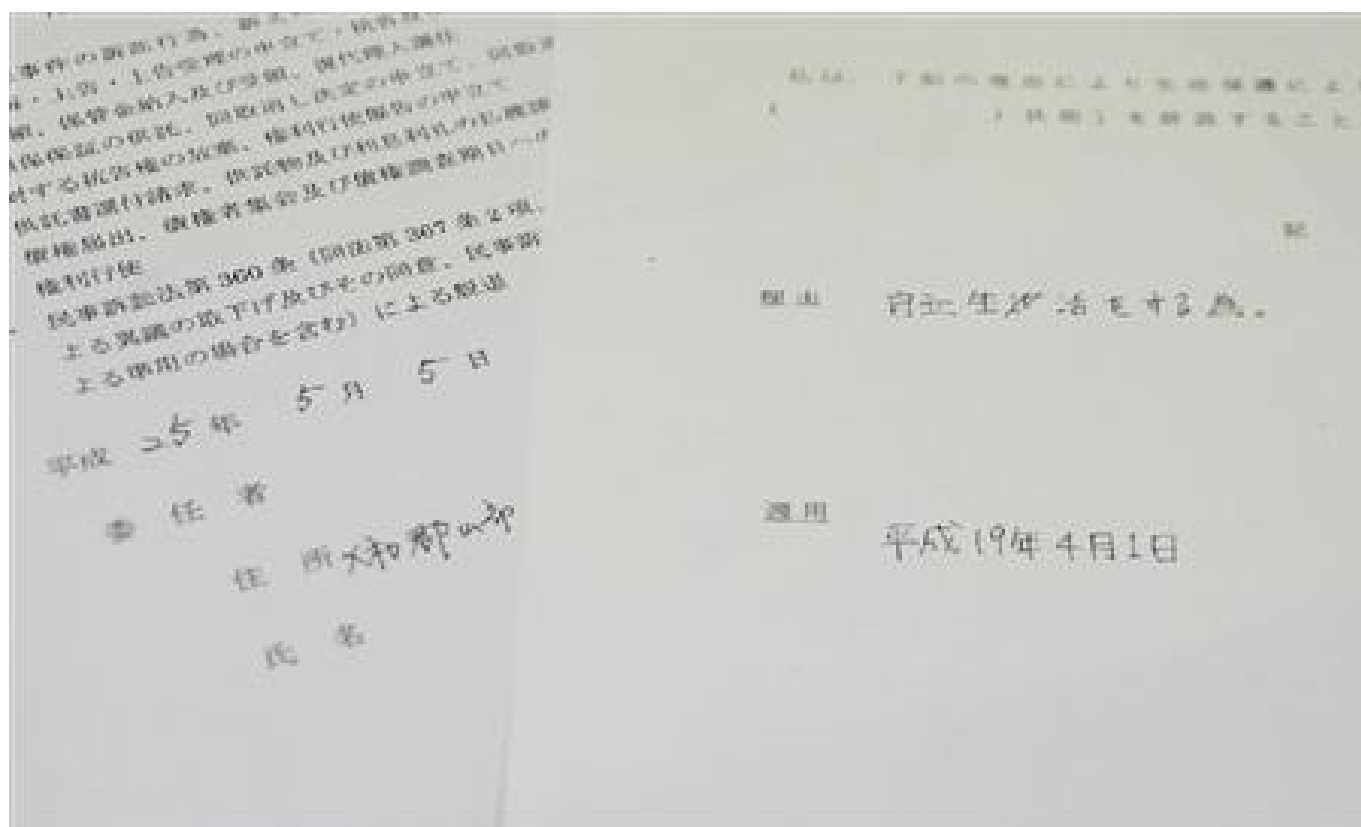 事件の訴訟行為、
・上告・上告受理の申立て・
、保管金納入及び受領、復代理人選任
担保保証の供託、同取消し決定の申立て、
対する抗告権の放棄、権利行使催告の申立て
供託書還付請求、供託物及び利息利札の払渡
債権届出、債権者集会及び債権調査期日への
権利行使
民事訴訟法第360条(同法第367条2項、
よる異議の取下げ及びその同意、民事訴
よる準用の場合を含む)による脱退
平成 25年 5月 5日
任者
住所 大和郡山
氏名
私は、下記の理由により生活保護によ
を辞退すること
記
理由 自立生活をする為。
適用 平成19年4月1日